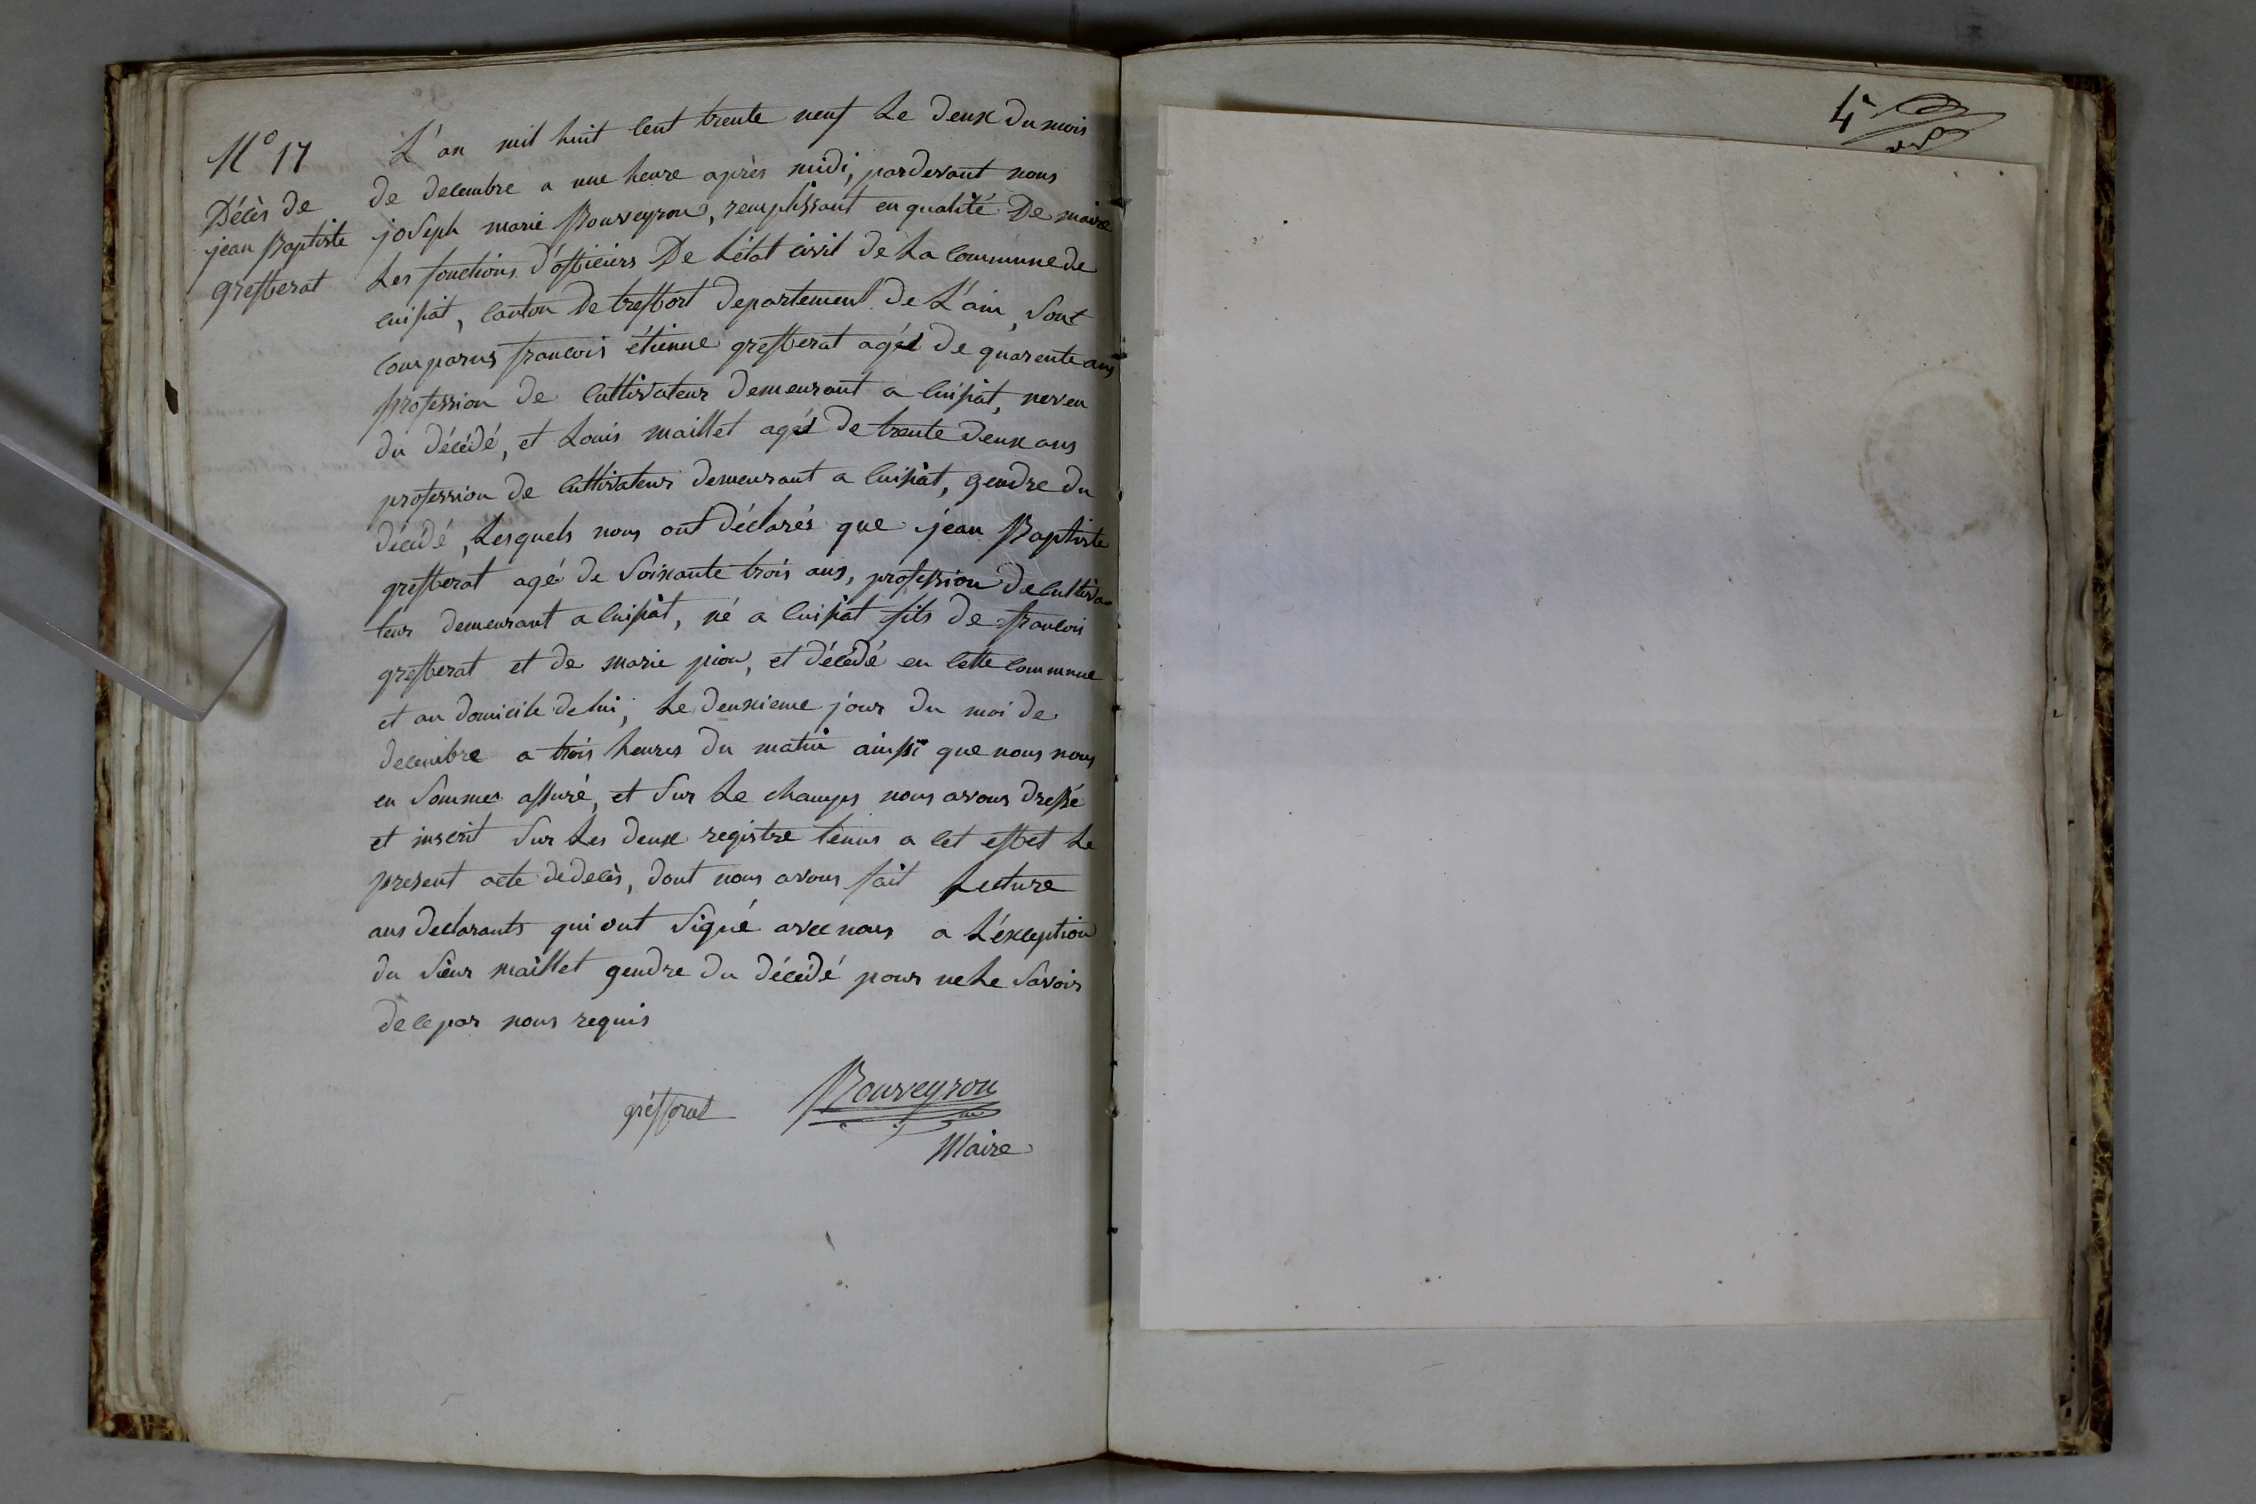 N° 17
Décès de
jean Baptiste
grefferat
L'an mil huit cent trente neuf Le deux du mois
de decembre a une heure après midi, pardevant nous
joseph marie Bouveyron, remplissant en qualité De maire
Les fonctions d'officiers De Létat civil de La commune de
cuisiat, canton de treffort departement de L'ain, sont
comparus francois étienne grefferat agés de quarente ans
profession de cultivateur demeurant a cuisiat, neveu
du décédé, et Louis maillet agés de trente deux ans
profession de cultivateur demeurant a cuisiat, gendre du
décédé, Lesquels nous ont déclarés que jean Baptiste
grefferat agé de soixante trois ans, profession de cultiva
teur demeurant a cuisiat, né a cuisiat fils de francois
grefferat et de marie pion, et décédé en cette commune
et au domicile de lui, Le deuxieme jour du moi de
decembre a trois heures du matin ainssi que nous nous
en sommes assuré, et sur Le champs nous avons dressé
et inscrit sur Les deux registre tenus a cet effet Le
present acte de decès, dont nous avons fait Lecture
aus declarants qui ont signé avec nous a L'éxception
du sieur maillet gendre du décédé pour ne Le savoir
de ce par nous requis
gréfferat
Bouveyron
Maire
4